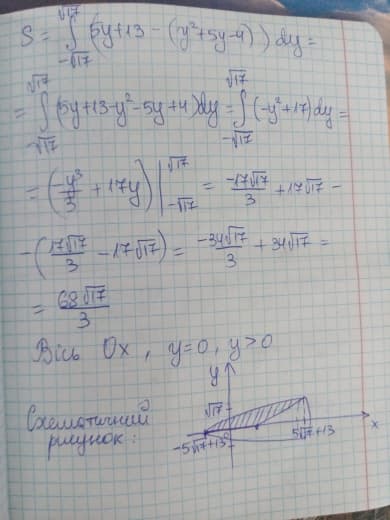 S = ∫_{-√17}^{√17} (5y+13 - (y²+5y-4)) dy =
= ∫_{-√17}^{√17} (5y+13-y²-5y+4) dy = ∫_{-√17}^{√17} (-y²+17) dy =
= (-y³/3 + 17y) |_{-√17}^{√17} = -17√17/3 + 17√17 -
- (17√17/3 - 17√17) = -34√17/3 + 34√17 =
= 68√17/3
Вісь Ox, y=0, y>0
y
Схематичний
рисунок:
√17
-5√17+13
5√17+13
x